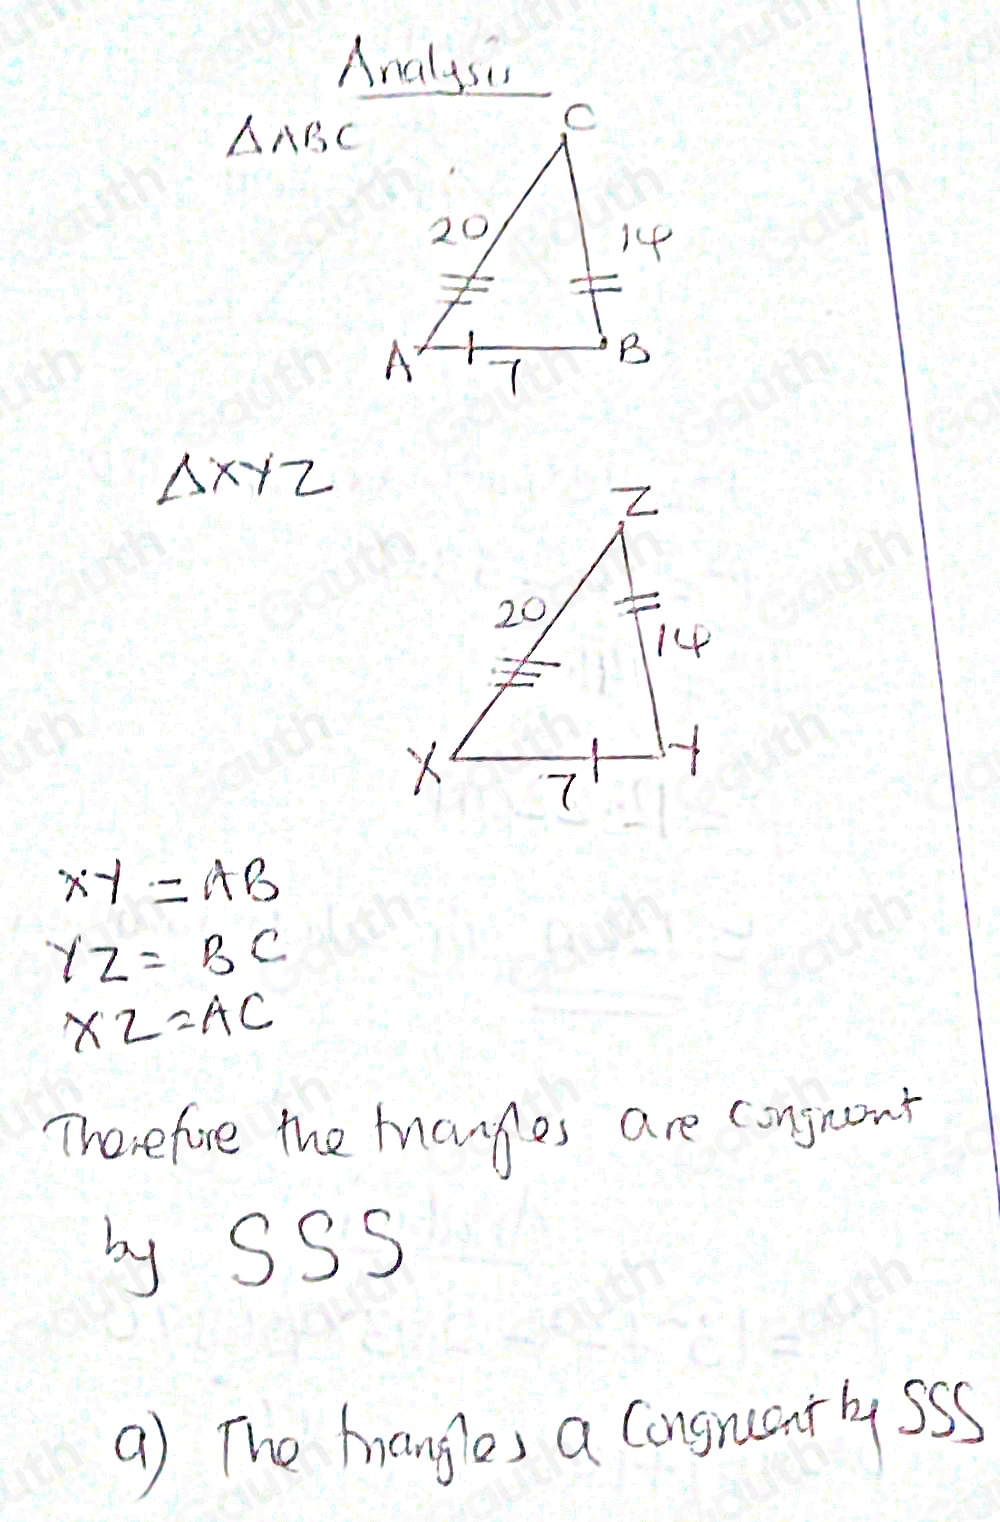 Analysis
△ABC
C
20
14
A
7
B
△XYZ
Z
20
14
X
7
Y
XY = AB
YZ = BC
XZ = AC
Therefore the triangles are congruent
by SSS
a) The triangles a Congruent by SSS